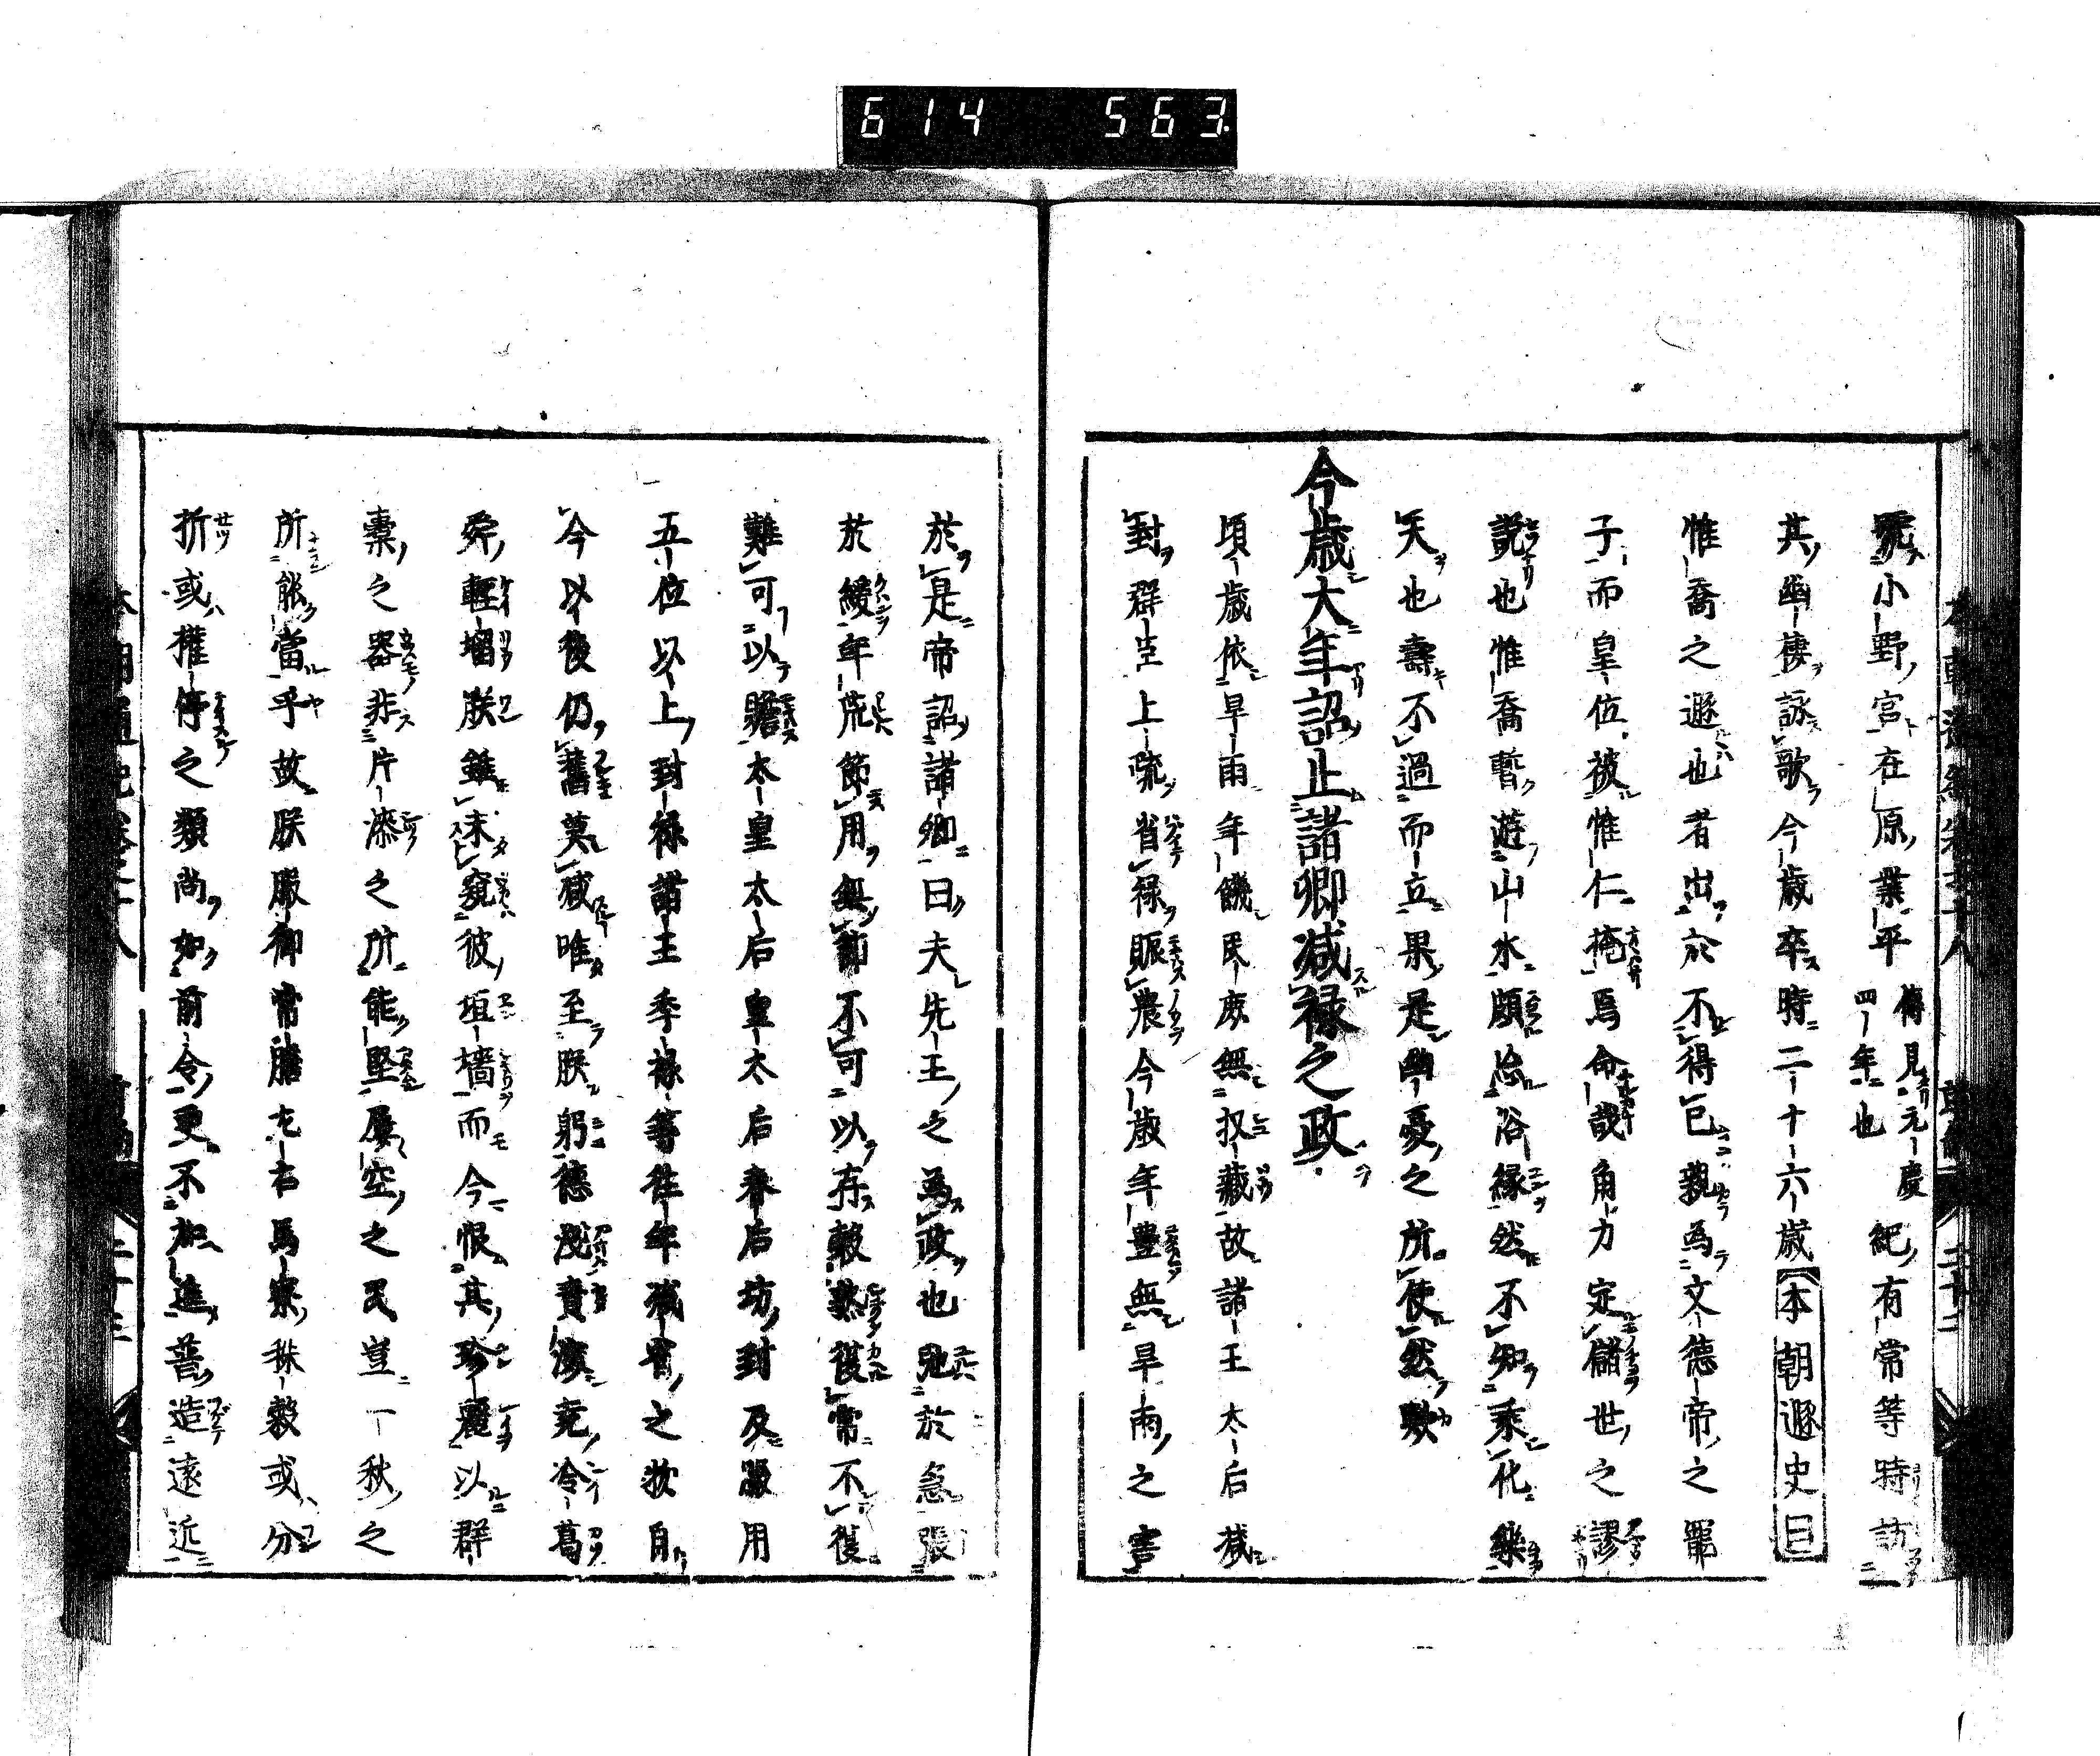 614 563
號小野宮在原業平傳見元慶四年也紀有常等時訪
其幽棲詠歌今歲卒時二十六歲本朝遯史曰
惟喬之遯也者出於不得已親爲文德帝之罷
子而皇位被惟仁掩焉命哉角力定儲世之謬
說也惟喬暫遊山水頗忘浴緣然不知乘化樂
天也壽不過而立果是幽憂之所使然歟
今歲大年詔止諸卿減祿之政
頃歲依旱雨年饑民庶無収藏故諸王太后減
封群臣上疏省祿賑農今歲年豐無旱雨之害
於是帝詔諸卿曰夫先王之爲政也弛於急張
於緩年荒節用無節不可以存穀熟復常不復
難可以贍太皇太后皇太后春后坊封及服用
五位以上封祿諸王季祿等往年減省之妝自
今以後仍舊莫減唯至朕躬德淺責深堯冷葛
舜輕塯朕雖未窺彼垣墻而今恨其珍麗以群
棗之器非片漆之所能堅屢空之民豈一秋之
所能當乎故朕服御常膳左右馬寮秣穀或分
折或權停之類尚如前令更不加進普造遠近